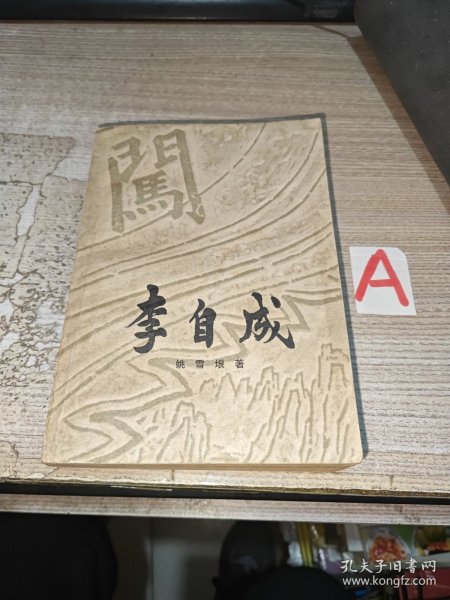 闖
李自成
姚雪垠著
A
孔夫子旧书网
www.kongfz.com